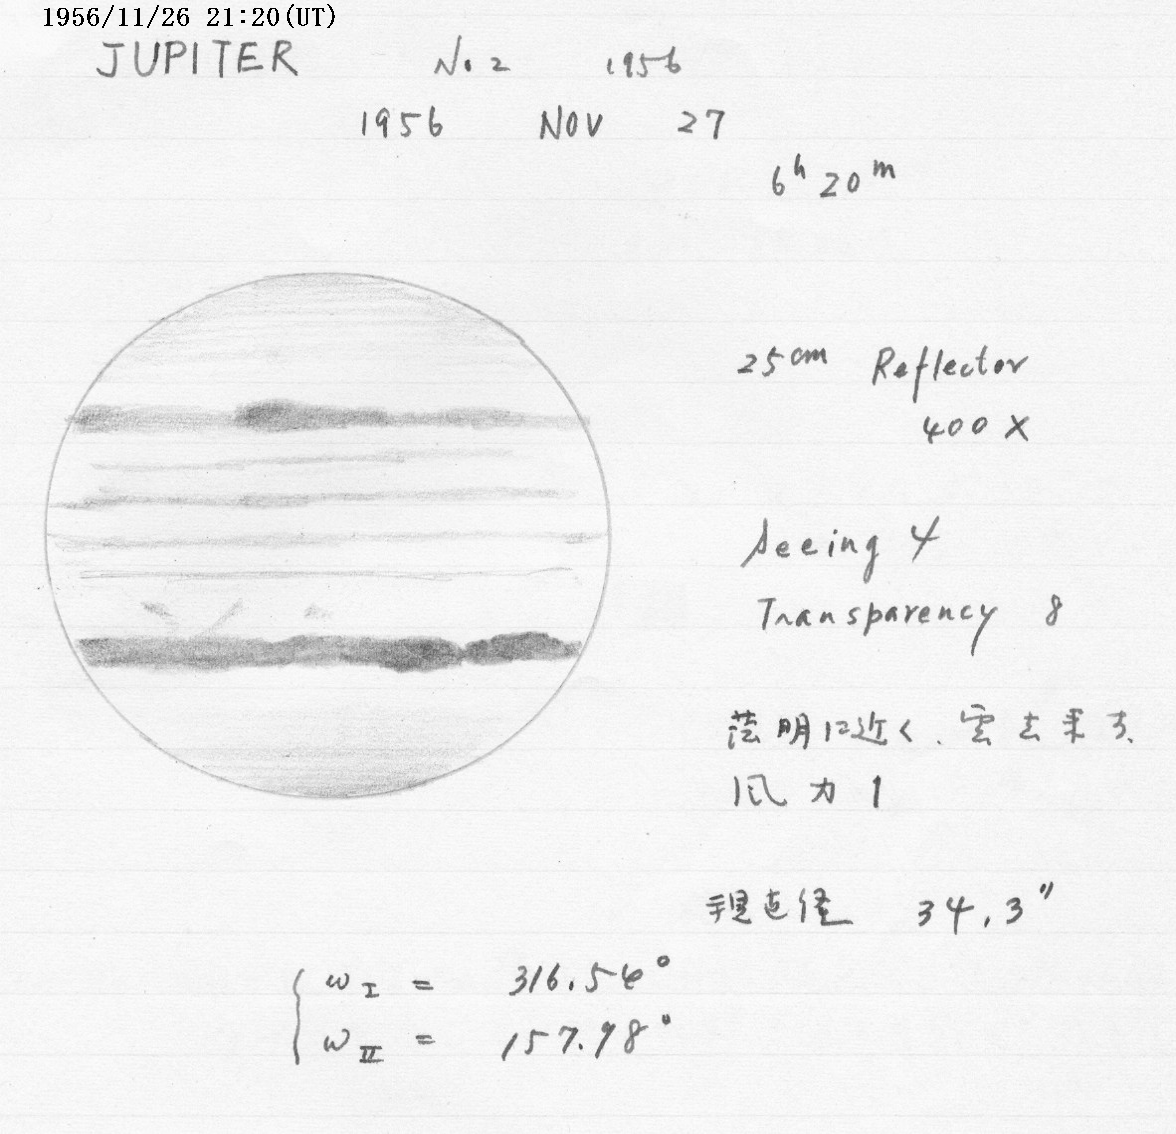 1956/11/26 21:20(UT)
JUPITER No. 2 1956
1956 NOV 27
6h 20m
25cm Reflector
400 X
Seeing 4
Transparency 8
明に近く、雲去来す、
風力 1
視直径 34.3"
ωI = 316.56°
ωII = 157.98°